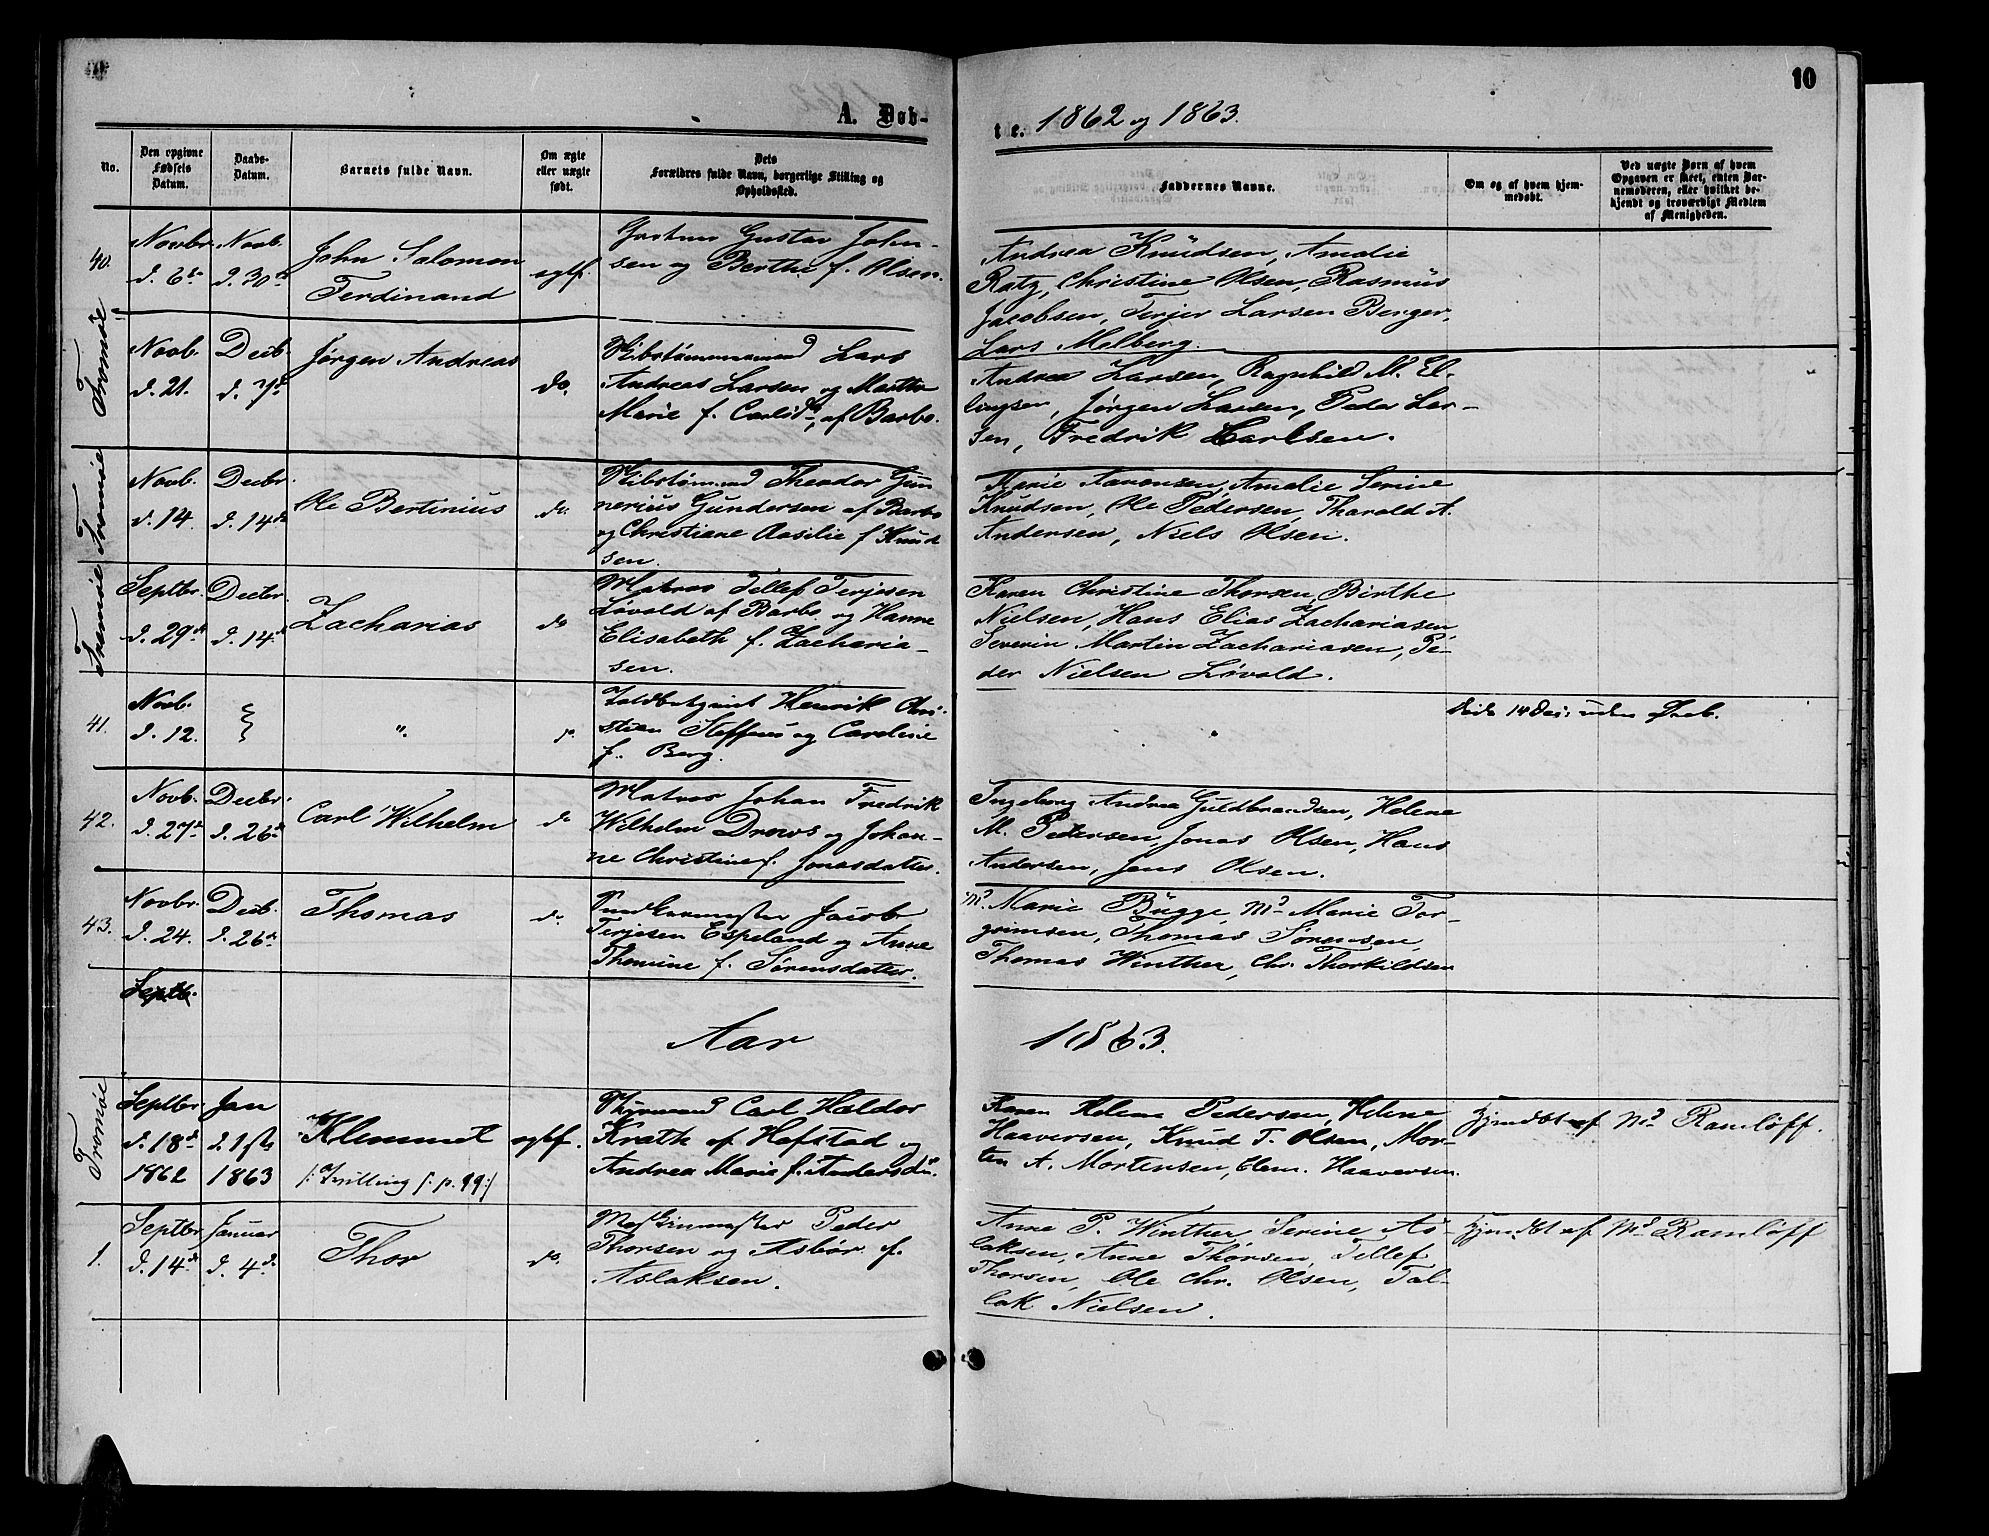 10
A. Døb-
te. 1862 og 1863.
No.
Den opgivne Fødsels Datum.
Daabs-Datum.
Barnets fulde Navn.
Om ægte eller uægte født.
Dets Forældres fulde Navn, borgerlige Stilling og Opholdssted.
Faddernes Navne.
Om og af hvem hjem-medøbt.
Ved uægte Børn af hvem Opgaven er skeet, enten Bar-nemoderen, eller hvilket be-kjendt og troværdigt Medlem af Menigheden.
40.
Novbr. d. 6te
Novb. d. 30te
John Salomon
Ferdinand
egtf.
Gustav John-
sen og Berthe f. Olsen.
Andrea Knudsen, Amalie
Ratz, Christine Olsen, Rasmus
Jacobsen, Terjer Larsen Berger,
Lars Melberg.
Tromøe
Novb. d. 21.
Decb. d. 7d
Jørgen Andreas
do.
Skibstømmermand Lars
Andreas Larsen og Marthe
Marie f. Carlsd. af Barbo.
Andrea Larsen, Ragnhild M. El-
lingsen, Jørgen Larsen, Peder Lar-
sen, Fredrik Carlsen.
Tromøe
Novb. d. 14.
Decbr. d. 14de
Ole Bertinius
do.
Skibstømmd Theodor Gun
nerius Gundersen af Barbo
og Christiane Aasilie f Knud
sen.
Marie Aaronsen, Amalie Serine
Knudsen, Ole Pedersen, Tharald A.
Andersen, Niels Olsen.
Tromøe
Septbr. d. 29de
Decbr. d. 14de
Zacharias
do
Matros Tellef Terjesen
Løvold af Barbo og Hanne
Elisabeth f. Zacharia-
sen.
Karen Christine Thorsen, Birthe
Nielsen, Hans Elias Zachariasen
Severin Martin Zachariasen, Pe-
der Nielsen Løvold.
41.
Novb. d. 12.
"
do.
Toldbetjent Henrik Chri-
stian Steffens og Caroline
f. Berg.
"
døde 14 Dec: uden Daab.
42.
Novb. d. 27de
Decbr. d. 26de
Carl Wilhelm
do
Matros Johan Fredrik
Wilhelm Drews og Johan-
ne Christine f. Jonasdatter.
Ingeborg Andrea Guldbrandsen, Helene
M. Petersen, Jonas Olsen, Hans
Andersen, Jens Olsen.
43.
Novbr. d. 24.
Decb. d. 26de
Thomas
do
Jacob
Terjesen Espeland og Anne
Thomine f. Sørensdatter.
Md. Marie Bugge, Md Marie Tor-
grimsen, Thomas Sørensen,
Thomas Winther, Chr. Thorkildsen
Septb.
Aar 1863.
Tromøe
Septbr. d. 18de 1862
Jan d. 1ste 1863
Klemmet
/: Tvilling /: p. 99:/
egtf.
Carl Haldor
Krath af Hofstad og
Andrea Marie f. Andersdr.
Karen Helene Pedersen, Helene
Haaversen, Knud T. Olsen, Mor-
ten A. Mortensen, Clem. Haaversen.
Hjemdbt af Md Ramløff.
1.
Septbr. d. 14de
Januar d. 4de
Thor
do.
Maskinmester Peder
Thorsen og Asbør f.
Aslaksen.
Anne P. Winther, Serine As-
laksen, Anne Thorsen, Tellef
Thorsen, Ole Chr. Olsen, Tal-
lak Nielsen.
Hjemdbt af Md Ramløff